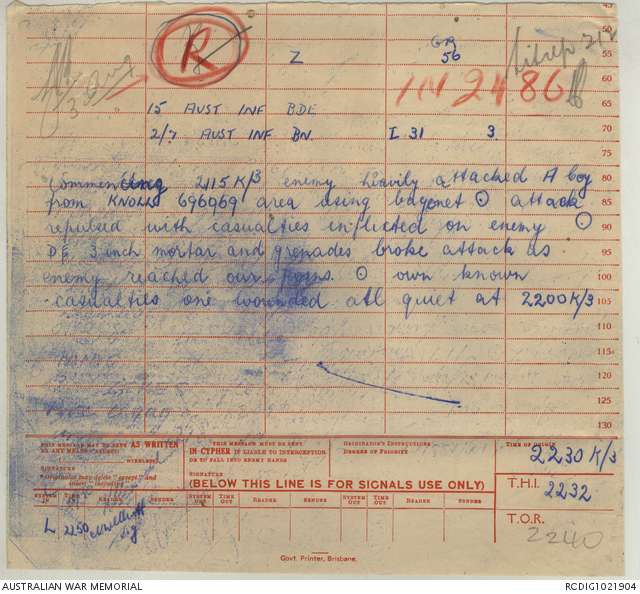 45
R
Z
GR
56
Sitrep 218
55
60
3 Aug
IN 2486
65
15 AUST INF BDE
2/7 AUST INF BN. I 31 3.
70
80
Commencing 2115K/3 enemy heavily attacked A Coy
85
from KNOLL 696969 area using bayonet ⊙ attack
repulsed with casualties inflicted on enemy ⊙
90
DF 3 inch mortar and grenades broke attack as
95
enemy reached our posns. ⊙ own known
100
casualties one wounded all quiet at 2200K/3
105
115
120
125
130
THIS MESSAGE MAY BE SENT AS WRITTEN
BY ANY MEANS EXCEPT
WIRELESS
SIGNATURE
THIS MESSAGE MUST BE SENT
IN CYPHER IF LIABLE TO INTERCEPTION
OR TO FALL INTO ENEMY HANDS
SIGNATURE
ORIGINATOR'S INSTRUCTIONS
DEGREE OF PRIORITY
TIME OF ORIGIN
2230 K/3
(BELOW THIS LINE IS FOR SIGNALS USE ONLY)
T.H.I.
2232
SYSTEM IN TIME IN READER SENDER SYSTEM OUT TIME OUT READER SENDER SYSTEM OUT TIME OUT READER SENDER
T.O.R.
2240
L 2250
sig
Govt. Printer, Brisbane.
AUSTRALIAN WAR MEMORIAL
RCDIG1021904